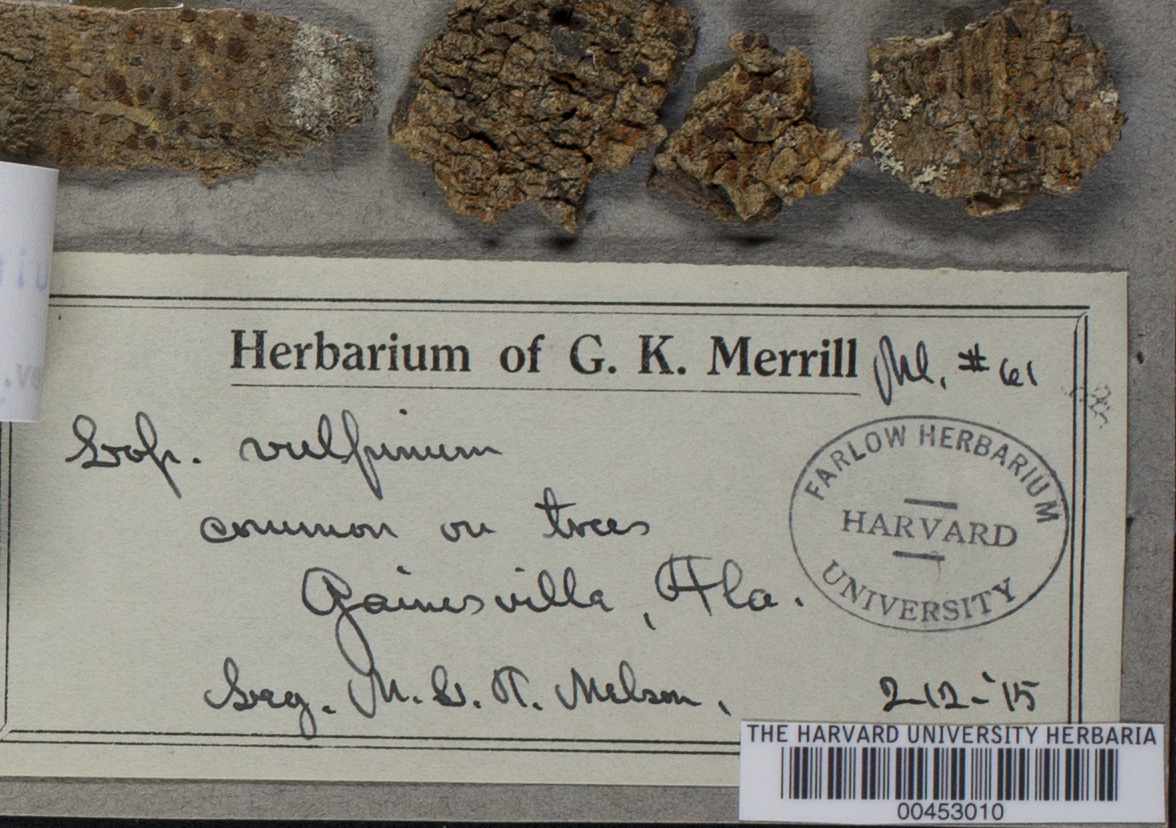 Herbarium of G. K. Merrill
#61
vulpinum
common on trees
Gainesville, Fla.
Nelson,
2-12-'15
FARLOW HERBARIUM
HARVARD
UNIVERSITY
THE HARVARD UNIVERSITY HERBARIA
00453010